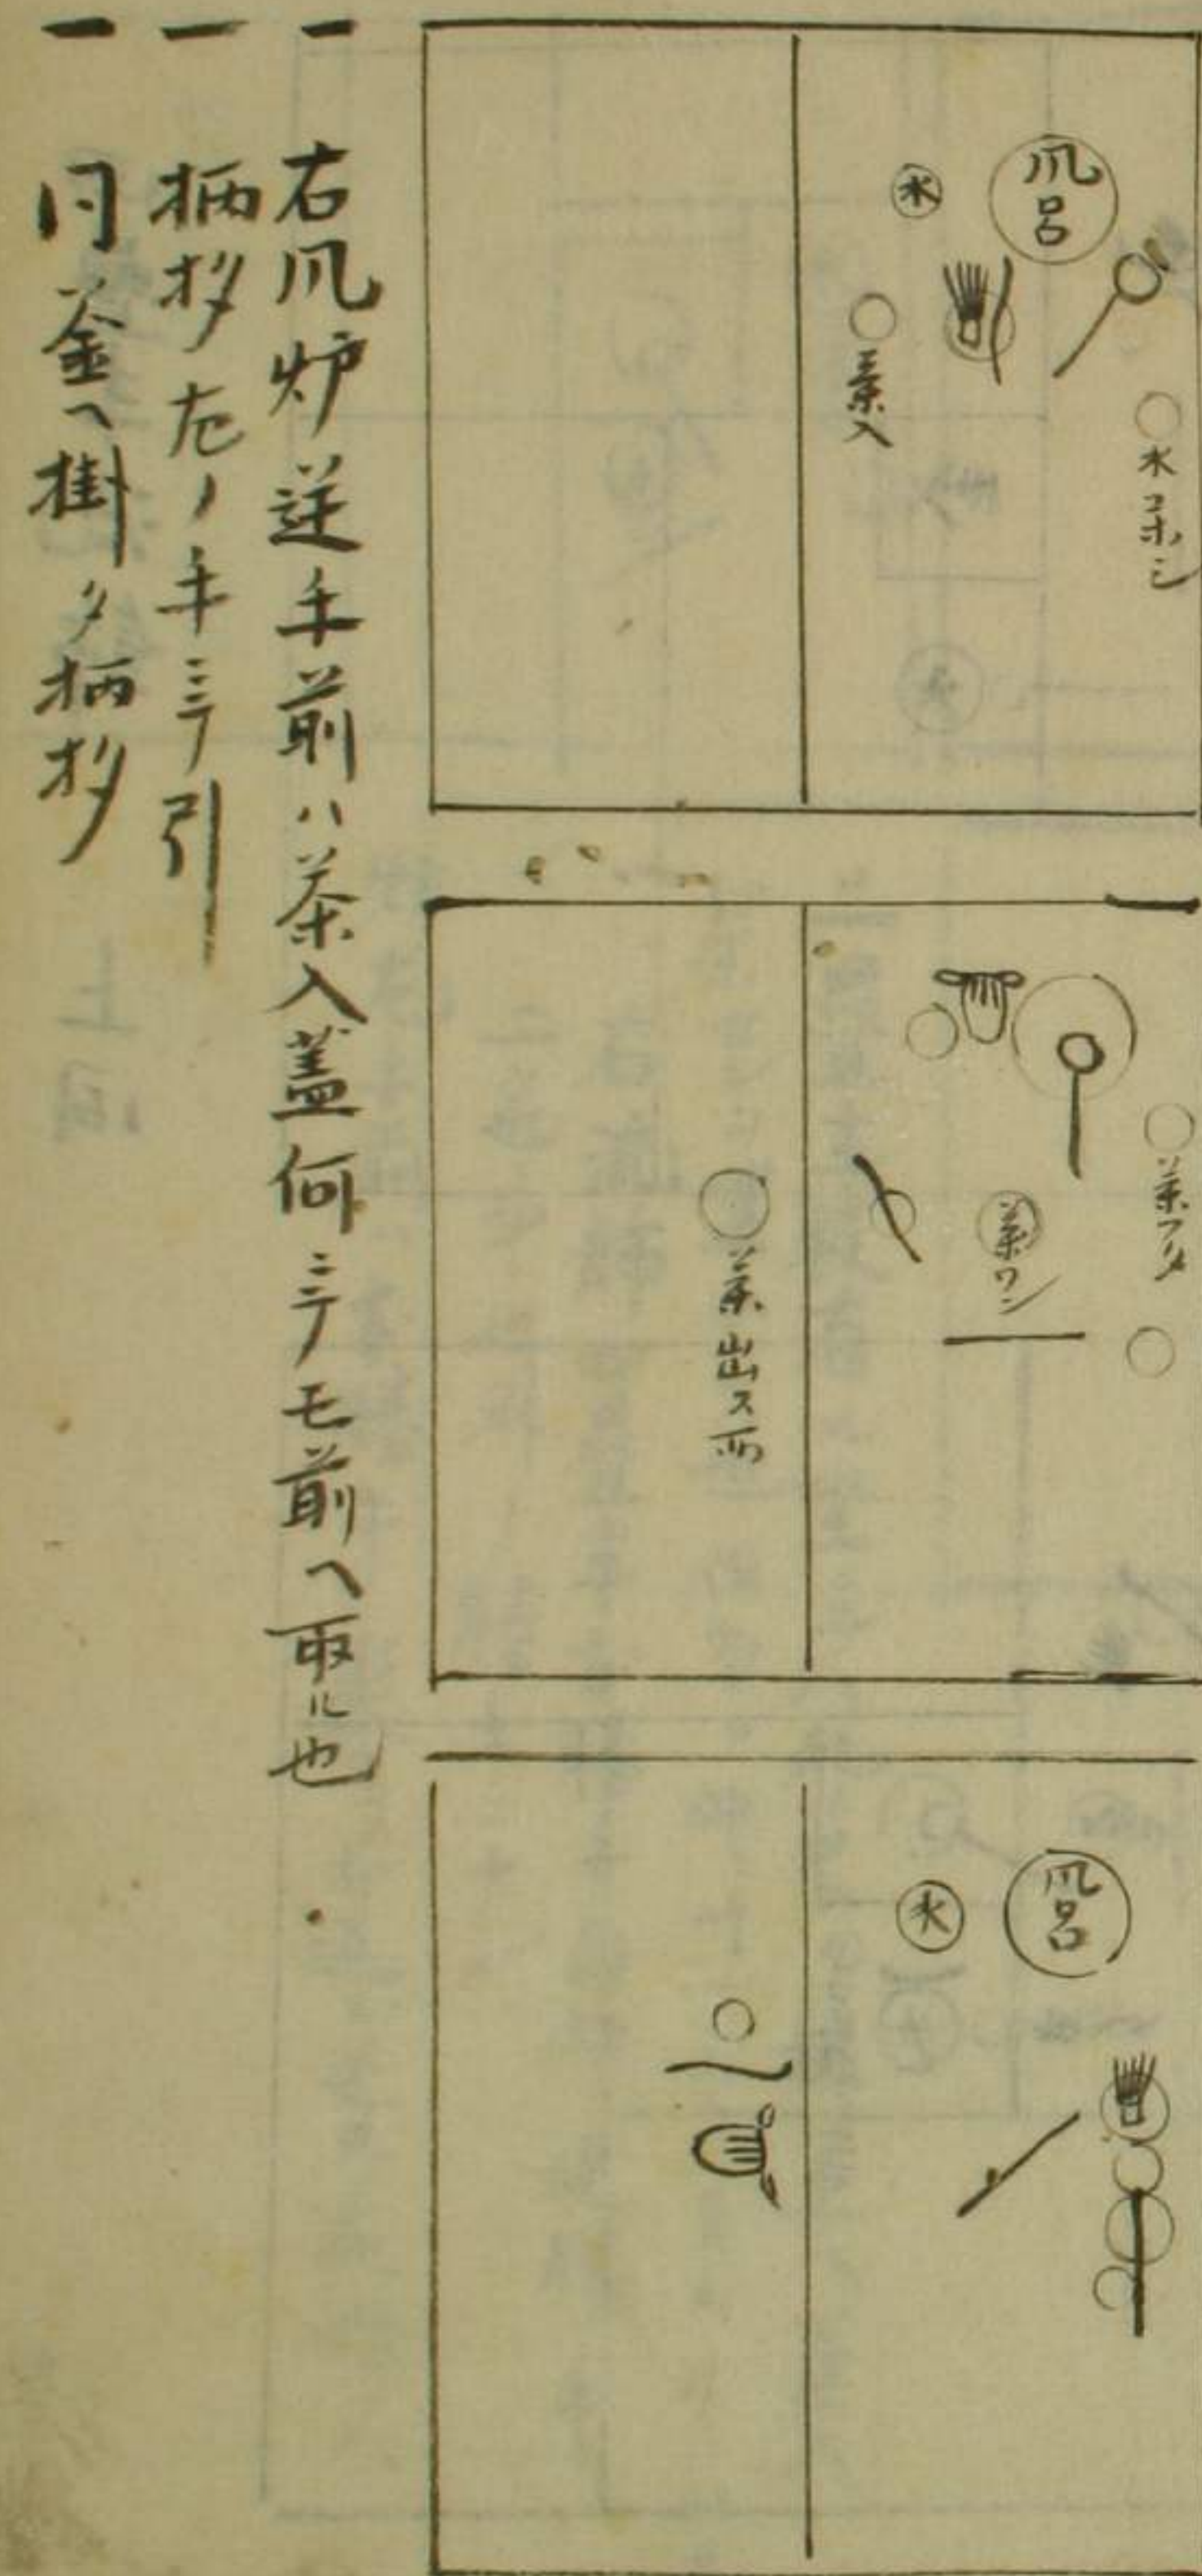 風呂
水
茶入
水コボシ
茶フタ
茶ワン
茶出ス所
風呂
水
一 右風炉逆手前ハ茶入蓋何ニテモ前ヘ取ル也
一 柄杓左ノ手ニテ引
一 同釜ヘ掛タ柄杓